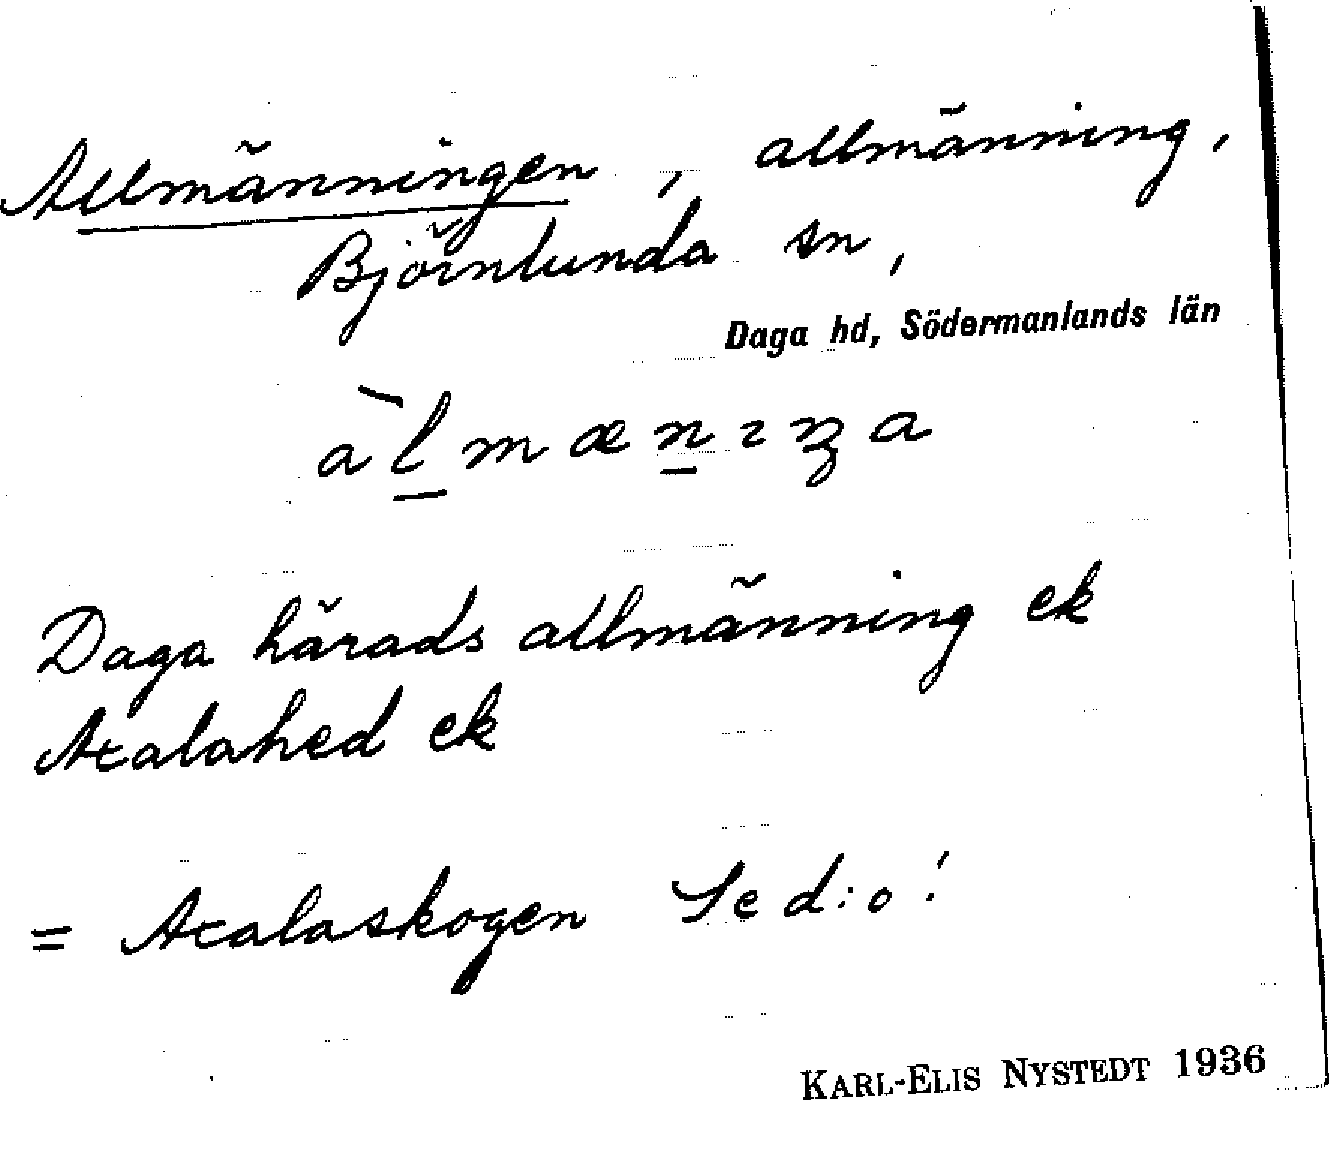 Allmänningen, allmänning,
Björnlunda sn,
Daga hd, Södermanlands län
Daga härads allmänning ek
Axalahed ek
= Axalaskogen Se d:o!
KARL-ELIS NYSTEDT 1936